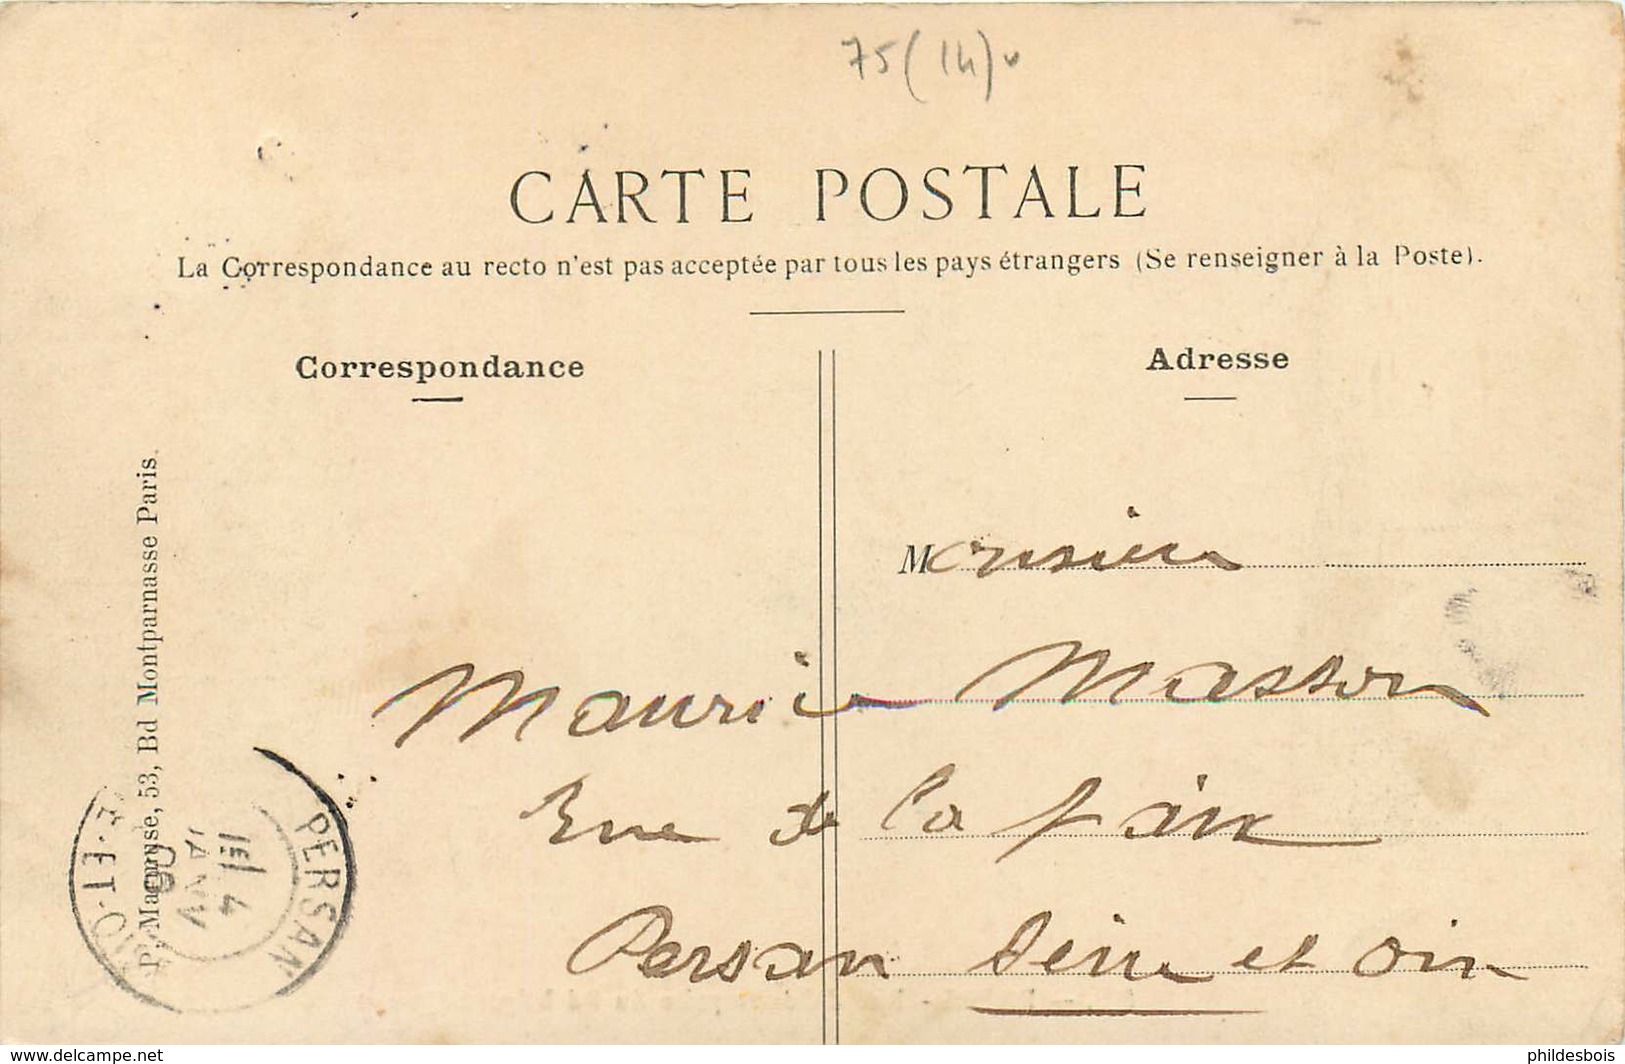 75 (14) v
CARTE POSTALE
La Correspondance au recto n'est pas acceptée par tous les pays étrangers (Se renseigner à la Poste).
Correspondance
Adresse
53, Bd Montparnasse Paris.
Monsieur
Maurice Masson
Rue de la paix
Persan Seine et Oise
PERSAN
4
JANV
ET-OISE
www.delcampe.net
phildesbois